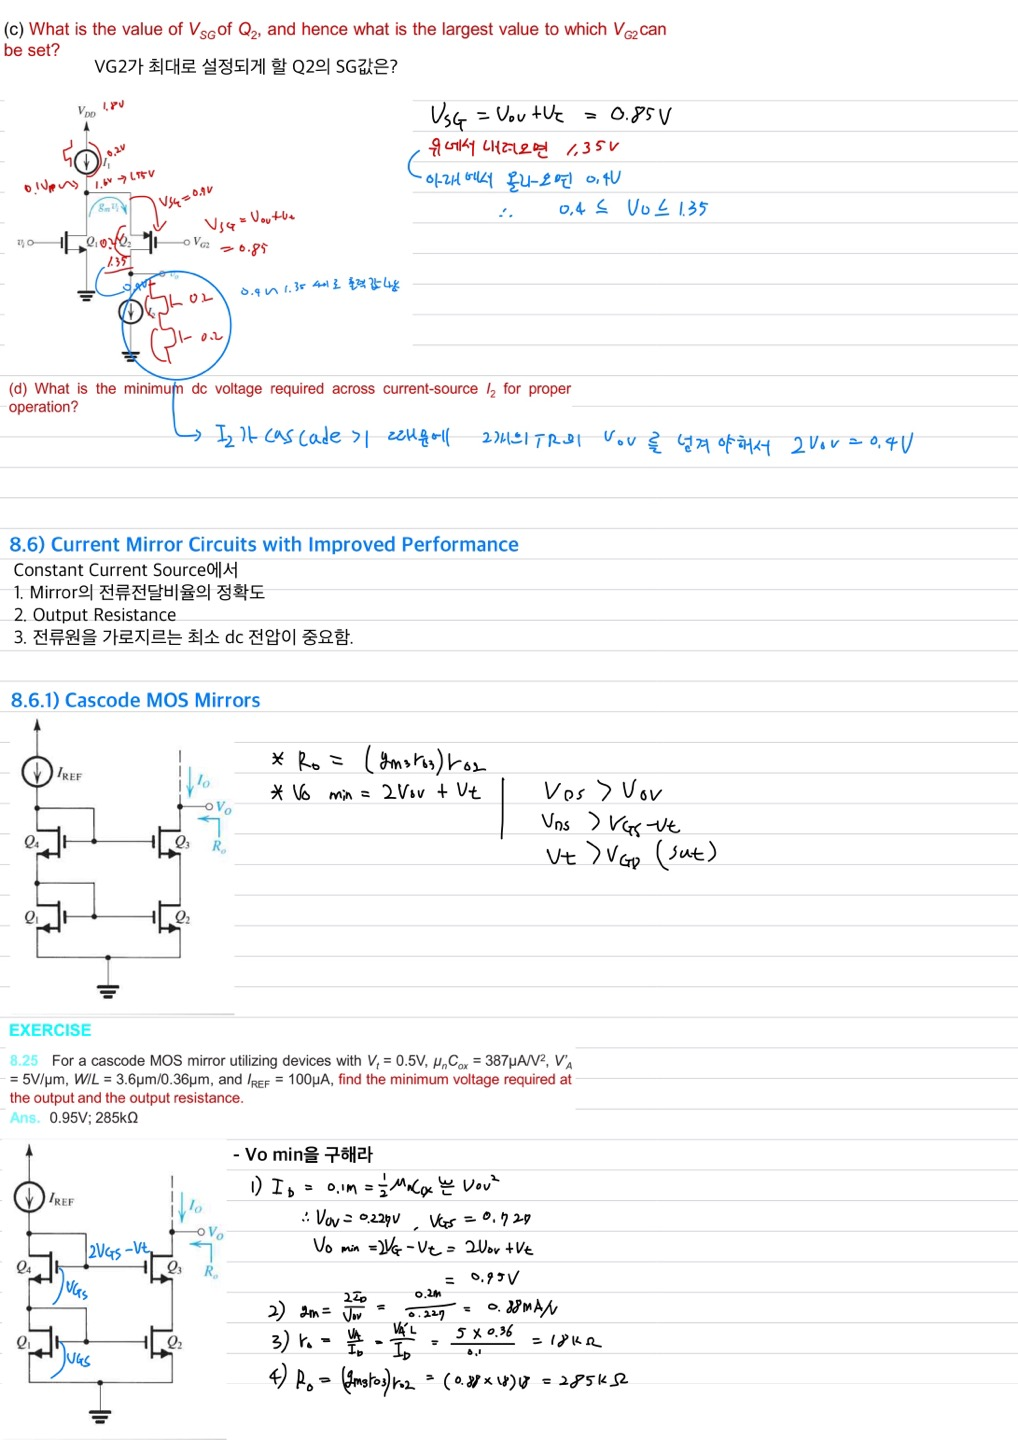 (c) What is the value of VSG of Q2, and hence what is the largest value to which VG2 can
be set?
VG2가 최대로 설정되게 할 Q2의 SG값은?
VDD 1.8V
0.2V
I1
0.1V
1.6V → 1.55V
VSG = 0.9V
gmvi
VSG = Vov+Vt
= 0.85
vi
Q1
Q2
VG2
1.35
0.2
0.2
VSG = Vov + Vt = 0.85V
위에서 내려오면 1.35V
아래에서 올라오면 0.4V
∴ 0.4 ≤ Vo ≤ 1.35
(d) What is the minimum dc voltage required across current-source I2 for proper
operation?
→ I2가 cascade기 때문에 2개의 TR의 Vov를 넘겨야해서 2Vov = 0.4V
8.6) Current Mirror Circuits with Improved Performance
Constant Current Source에서
1. Mirror의 전류전달비율의 정확도
2. Output Resistance
3. 전류원을 가로지르는 최소 dc 전압이 중요함.
8.6.1) Cascode MOS Mirrors
IREF
IO
VO
Ro
Q4
Q3
Q1
Q2
* Ro = (gm3ro3)ro2
* Vo min = 2Vov + Vt
VDS > Vov
VDS > VGS-Vt
Vt > VGD (sat)
EXERCISE
8.25 For a cascode MOS mirror utilizing devices with Vt = 0.5V, μnCox = 387μA/V², V'A
= 5V/μm, W/L = 3.6μm/0.36μm, and IREF = 100μA, find the minimum voltage required at
the output and the output resistance.
Ans. 0.95V; 285kΩ
IREF
IO
VO
Ro
2VGS-Vt
Q4
Q3
VGS
Q1
Q2
VGS
- Vo min을 구해라
1) ID = 0.1m = ½ μnCox W/L Vov²
∴ Vov = 0.227V, VGS = 0.727
Vo min = 2VG - Vt = 2Vov + Vt
= 0.95V
2) gm = 2ID/Vov = 0.2m/0.227 = 0.88mA/V
3) ro = VA/ID = VA'L/ID = 5 × 0.36/0.1 = 18kΩ
4) Ro = (gm3ro3)ro2 = (0.88 × 18)18 = 285kΩ